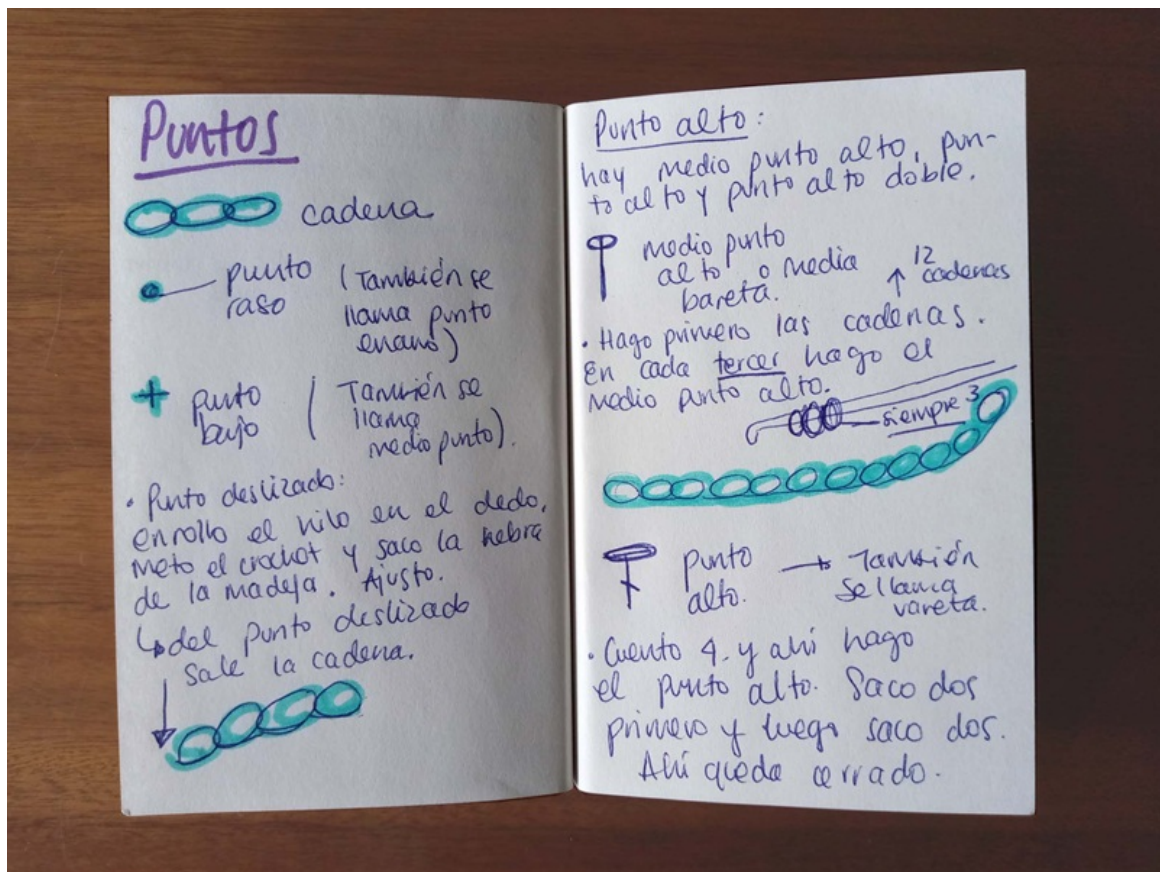 Puntos
cadena
punto (También se
raso llama punto
enano)
+ punto (También se
bajo llama
medio punto).
• Punto deslizado:
enrollo el hilo en el dedo,
meto el crochet y saco la hebra
de la madeja. Ajusto.
↳ del punto deslizado
sale la cadena.
Punto alto:
hay medio punto alto, pun-
to alto y punto alto doble.
medio punto
alto o media
bareta.
↑ 12
cadenas
• Hago primero las cadenas.
En cada tercer hago el
medio punto alto.
siempre 3
Punto → También
alto. se llama
vareta.
• Cuento 4. y ahí hago
el punto alto. Saco dos
primero y luego saco dos.
Ahí queda cerrado.